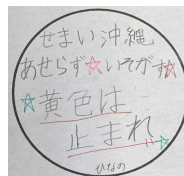 せまい沖縄
あせらず☆いそがず☆
☆黄色は
止まれ
ひなの